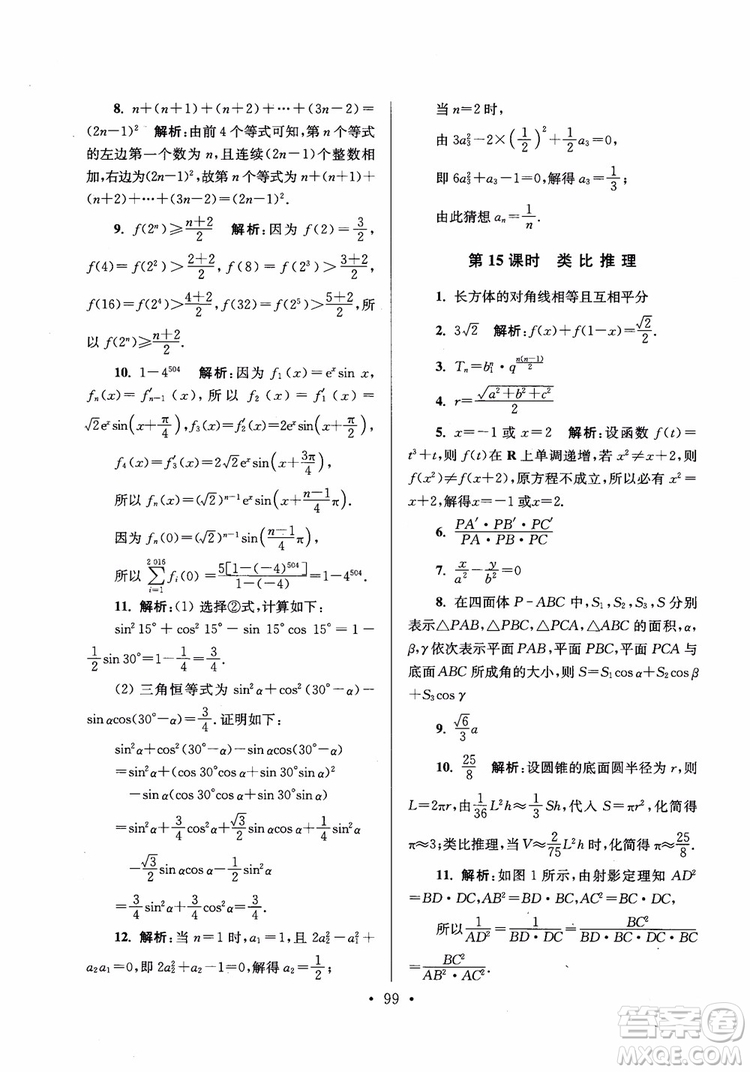 8. n+(n+1)+(n+2)+⋯+(3n−2)=
(2n−1)² 解析:由前 4 个等式可知,第 n 个等式
的左边第一个数为 n,且连续(2n−1)个整数相
加,右边为(2n−1)²,故第 n 个等式为 n+(n+1)+
(n+2)+⋯+(3n−2)=(2n−1)².
9. f(2ⁿ)≥(n+2)/2 解析:因为 f(2)=3/2,
f(4)=f(2²)>(2+2)/2,f(8)=f(2³)>(3+2)/2,
f(16)=f(2⁴)>(4+2)/2,f(32)=f(2⁵)>(5+2)/2,所
以 f(2ⁿ)≥(n+2)/2.
10. 1−4⁵⁰⁴ 解析:因为 f₁(x)=eˣsin x,
fₙ(x)=f′ₙ₋₁(x),所以 f₂(x)=f′₁(x)=
√2eˣsin(x+π/4),f₃(x)=f′₂(x)=2eˣsin(x+π/2),
f₄(x)=f′₃(x)=2√2eˣsin(x+3π/4),
所以 fₙ(x)=(√2)ⁿ⁻¹eˣsin(x+(n−1)/4 π).
因为 fₙ(0)=(√2)ⁿ⁻¹sin((n−1)/4 π),
所以 ∑_{i=1}^{2 016} fᵢ(0)=5[1−(−4)⁵⁰⁴]/(1−(−4))=1−4⁵⁰⁴.
11. 解析:(1) 选择②式,计算如下:
sin²15°+cos²15°−sin 15°cos 15°=1−
1/2 sin 30°=1−1/4=3/4.
(2) 三角恒等式为 sin²α+cos²(30°−α)−
sin αcos(30°−α)=3/4.证明如下:
sin²α+cos²(30°−α)−sin αcos(30°−α)
=sin²α+(cos 30°cos α+sin 30°sin α)²−
sin α(cos 30°cos α+sin 30°sin α)
=sin²α+3/4 cos²α+√3/2 sin αcos α+1/4 sin²α
−√3/2 sin αcos α−1/2 sin²α
=3/4 sin²α+3/4 cos²α=3/4.
12. 解析:当 n=1 时,a₁=1,由 2a₂²−a₁²+
a₂a₁=0,即 2a₂²+a₂−1=0,解得 a₂=1/2;
当 n=2 时,
由 3a₃²−2×(1/2)²+1/2 a₃=0,
即 6a₃²+a₃−1=0,解得 a₃=1/3;
由此猜想 aₙ=1/n.
第 15 课时 类比推理
1. 长方体的对角线相等且互相平分
2. 3√2 解析:f(x)+f(1−x)=√2/2.
3. Tₙ=b₁ⁿ·q^(n(n−1)/2)
4. r=√(a²+b²+c²)/2
5. x=−1 或 x=2 解析:设函数 f(t)=
t³+t,则 f(t)在 R 上单调递增,若 x²≠x+2,则
f(x²)≠f(x+2),原方程不成立,所以必有 x²=
x+2,解得x=−1或x=2.
6. (PA′·PB′·PC′)/(PA·PB·PC)
7. x/a²−y/b²=0
8. 在四面体 P-ABC 中,S₁,S₂,S₃,S 分别
表示△PAB,△PBC,△PCA,△ABC 的面积,α,
β,γ依次表示平面 PAB,平面 PBC,平面 PCA 与
底面 ABC 所成角的大小,则 S=S₁cos α+S₂cos β
+S₃cos γ
9. √6/3 a
10. 25/8 解析:设圆锥的底面圆半径为 r,则
L=2πr,由1/36 L²h≈1/3 Sh,代入 S=πr²,化简得 π
≈3;类比推理,当 V≈2/75 L²h 时,化简得 π≈25/8.
11. 解析:如图 1 所示,由射影定理知 AD²
=BD·DC,AB²=BD·BC,AC²=BC·DC,
所以1/AD²=1/(BD·DC)=BC²/(BD·BC·DC·BC)
=BC²/(AB²·AC²).
· 99 ·
答案卷
www.daanjuan.com